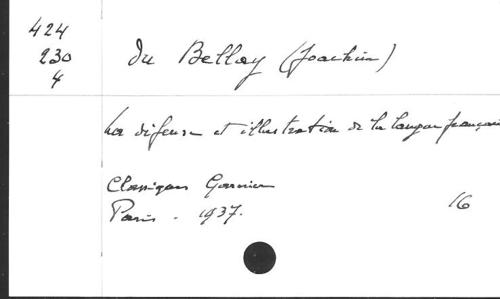 424
230
4
du Bellay (Joachim)
La défense et illustration de la langue français
Classiques Garnier
Paris - 1937.
16